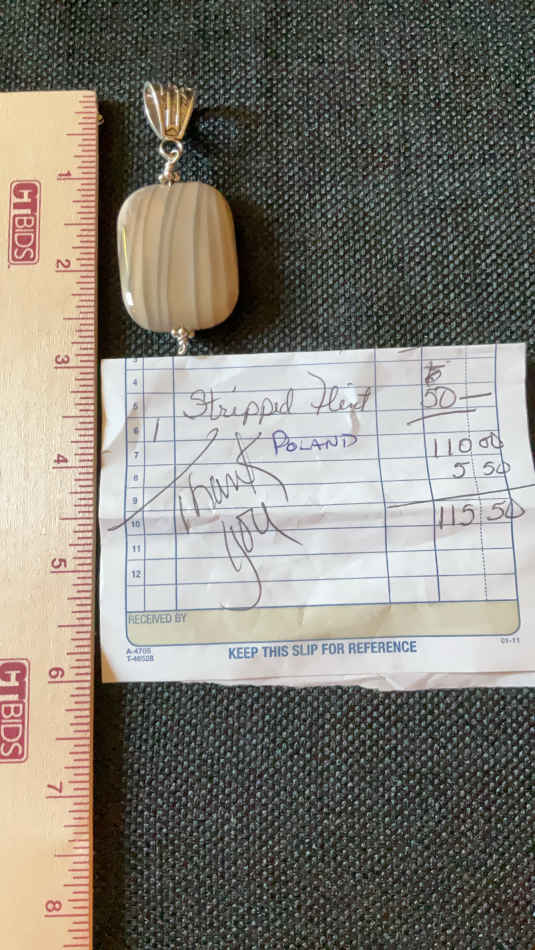 1
HTBIDS
2
3
4
5
6
HTBIDS
7
8
3
4
5
Stripped Flint
50 —
6
1
7
POLAND
110 00
8
5 50
Thank
9
10
you
115 50
11
12
RECEIVED BY
A-4705
T-46528
KEEP THIS SLIP FOR REFERENCE
01-11